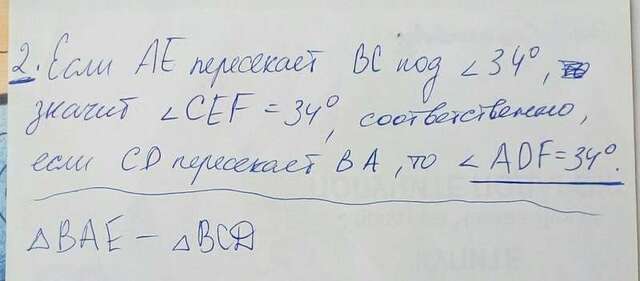 2. Если AE пересекает BC под ∠34°,
значит ∠CEF = 34°, соответственно,
если CD пересекает BA, то ∠ADF=34°.
△BAE – △BCD